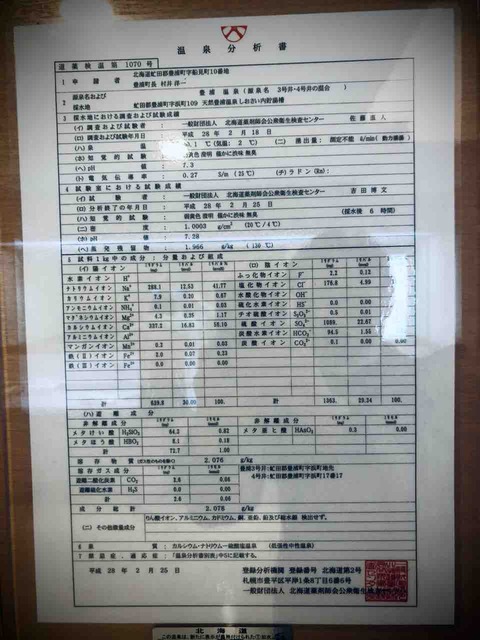 温泉分析書
道薬検温第 1070 号
1 申請者 北海道虻田郡豊浦町字船見町10番地
豊浦町長 村井 洋一
2 源泉名および採水地 豊浦 温泉（源泉名 3号井・4号井の混合）
虻田郡豊浦町字浜町109 天然豊浦温泉しおさい内貯湯槽
3 採水地における調査および試験成績
(イ)調査および試験者 一般財団法人 北海道薬剤師会公衆衛生検査センター
(ロ)調査および試験年月日 平成 28 年 2 月 18 日 (ニ)湧出量: 測定不能 ℓ/min(動力揚湯)
(ハ)泉温 (気温: 2 ℃)
(ホ)知覚的試験 黄色 澄明 僅かに渋味 無臭
(ヘ)pH 7.3
(ト)電気伝導率: 0.27 S/m (25℃) (チ)ラドン(Rn):
4 試験室における試験成績
(イ)試験者 一般財団法人 北海道薬剤師会公衆衛生検査センター 吉田 博文
(ロ)分析終了の年月日: 平成 28 年 2 月 25 日
(ハ)知覚的試験: 弱黄色 澄明 僅かに渋味 無臭 (採水後 6 時間)
(ニ)密度: 1.0003 g/cm³ (20℃/4℃)
(ホ)pH 7.28
(ヘ)蒸発残留物: 1.966 g/kg (110℃)
5 試料1kg中の成分:分量および組成
(イ)陽イオン ミリグラム (mg) (ロ)陰イオン ミリグラム (mg)
水素イオン H⁺ ふっ化物イオン F⁻ 2.2 0.12
ナトリウムイオン Na⁺ 288.1 12.53 41.77 塩化物イオン Cl⁻ 176.8 4.99
カリウムイオン K⁺ 7.9 0.20 0.67 水酸イオン OH⁻
アンモニウムイオン NH₄⁺ 0.1 0.01 0.03 硫化水素イオン HS⁻ 0.0 0.00
マグネシウムイオン Mg²⁺ 4.3 0.35 1.17 チオ硫酸イオン S₂O₃²⁻ 0.5 0.01
カルシウムイオン Ca²⁺ 337.2 16.83 56.10 硫酸イオン SO₄²⁻ 1089. 22.67
アルミニウムイオン Al³⁺ 炭酸水素イオン HCO₃⁻ 94.5 1.55
マンガンイオン Mn²⁺ 0.2 0.01 0.03 炭酸イオン CO₃²⁻ 0.1 0.00
鉄(Ⅱ)イオン Fe²⁺ 2.0 0.07 0.23
鉄(Ⅲ)イオン Fe³⁺ 0.0 0.00 0.00
計 639.8 30.00 100. 計 1363. 29.34 100.
(ハ)遊離成分
非解離成分 非解離成分
メタけい酸 H₂SiO₃ 64.2 0.82 メタ亜ヒ酸 HAsO₂ 0.3 0.00
メタほう酸 HBO₂ 8.1 0.18
計 72.7 1.00
溶存物質(ガス性のものを除く) 2.076 g/kg
溶存ガス成分 豊浦3号井:虻田郡豊浦町字浜町地先
遊離二酸化炭素 CO₂ 2.6 0.06 4号井:虻田郡豊浦町字浜町17番17
遊離硫化水素 H₂S 0.0 0.00
計 2.6 0.06
成分総計 2.078 g/kg
(ニ)その他微量成分 りん酸イオン、アルミニウム、カドミウム、銅、亜鉛、鉛及び総水銀 検出せず。
6 泉質: カルシウム・ナトリウム－硫酸塩温泉 (低張性中性温泉)
7 禁忌症、適応症: 「温泉分析書別表」中5に記載する。
平成 28 年 2 月 25 日
登録分析機関 登録番号 北海道第2号
札幌市豊平区平岸1条8丁目6番6号
一般財団法人 北海道薬剤師会公衆衛生検査センター
北海道